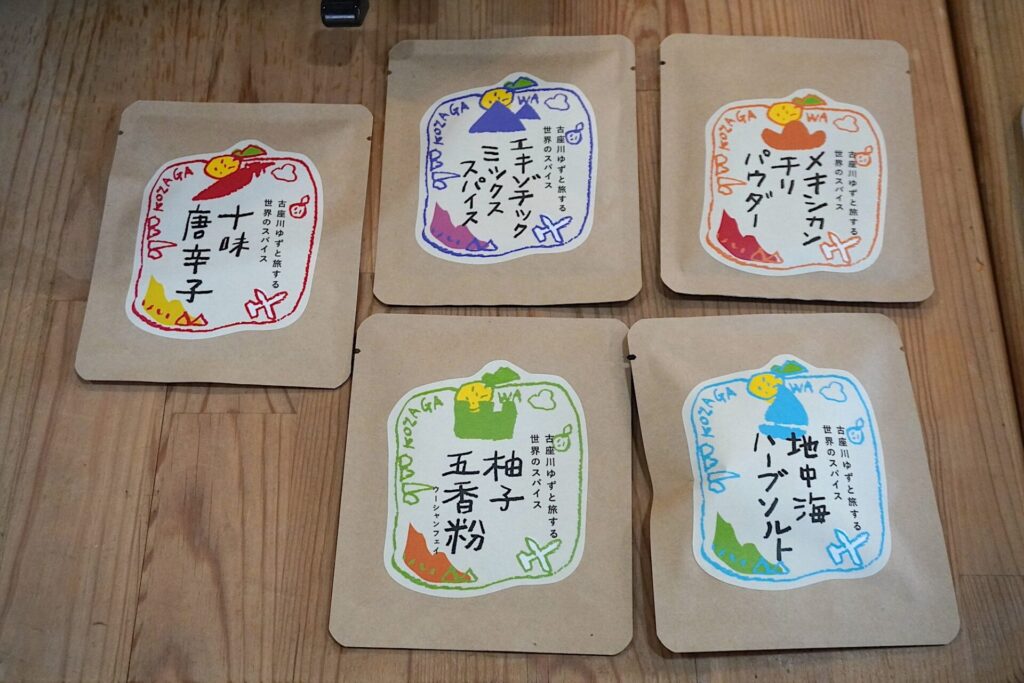 KOZAGAWA
古座川ゆずと旅する
世界のスパイス
十味
唐辛子
KOZAGAWA
古座川ゆずと旅する
世界のスパイス
エキゾチック
ミックス
スパイス
KOZAGAWA
古座川ゆずと旅する
世界のスパイス
メキシカン
チリ
パウダー
KOZAGAWA
古座川ゆずと旅する
世界のスパイス
柚子
五香粉
ウーシャンフェイ
KOZAGAWA
古座川ゆずと旅する
世界のスパイス
地中海
ハーブソルト